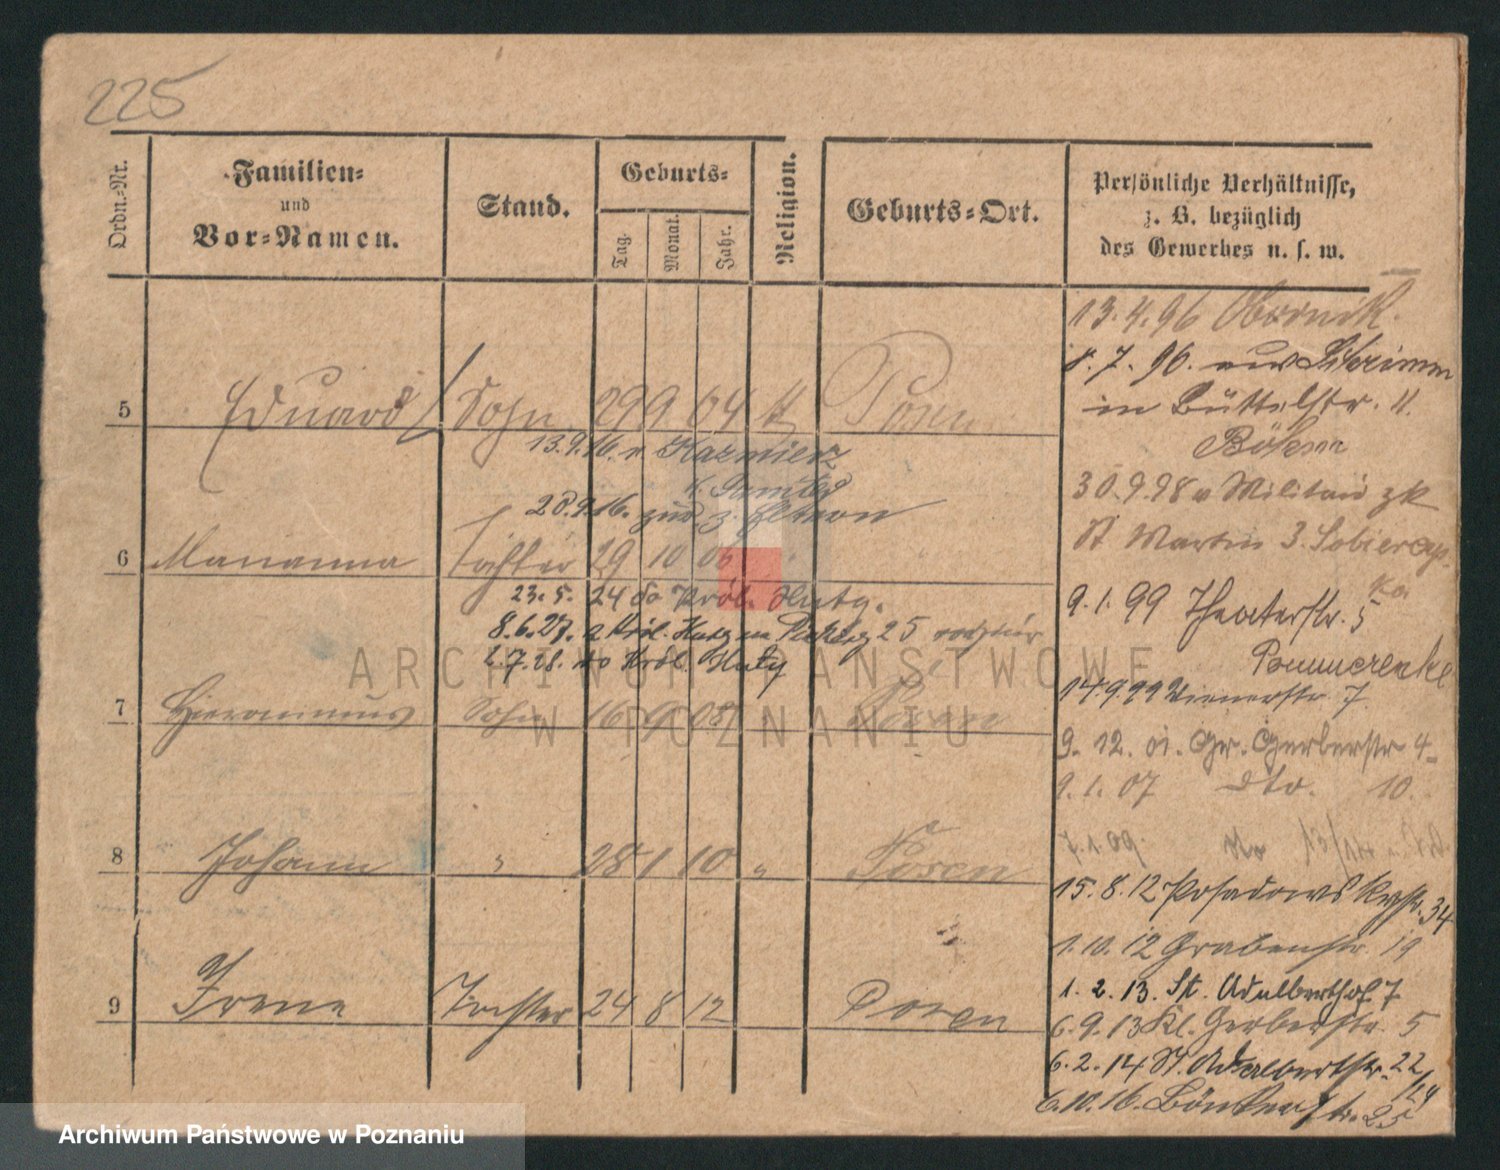 225
Ordn.-Nr.
Familien-
und
Vor-Namen.
Stand.
Geburts-
Tag.
Monat.
Jahr.
Religion.
Geburts-Ort.
Persönliche Verhältnisse,
z. B. bezüglich
des Gewerbes u. s. w.
5 Eduard Sohn 29 9 04 Posen
13.9.16. n Kazmierz
28.9.16. zur. z. Eltern
6 Marianna Tochter 29 10 06
23. 5. 24 do Król. Huty.
8.6.27. z Król. Huty 25
2.7.28. do Król. Huty
7 Hieronimus Sohn 16 9 08 Posen
8 Johann " 28 1 10 " Posen
9 Irene Tochter 24 8 12 Posen
13. 4. 96 Obornik.
8. 7. 96. aus
in Büttelstr. 11.
Böhm
30.9.98 v Militair zk
St Martin 3.
9. 1. 99 Theaterstr. 5
Pommerenke
14.9.99 Wienerstr. 7
9. 12. 01. Gr. Gerberstr 4
9. 1. 07 dto. 10.
7.1.09. do 13/14
15. 8. 12 Posadowskystr. 34
1. 10. 12 Grabenstr. 19
1. 2. 13. St. Adalberthof 7
6. 9. 13 Kl. Gerberstr. 5
6. 2. 14 St. Adalbertstr. 22
/24
6. 10. 16. 25
ARCHIWUM PAŃSTWOWE
W POZNANIU
Archiwum Państwowe w Poznaniu